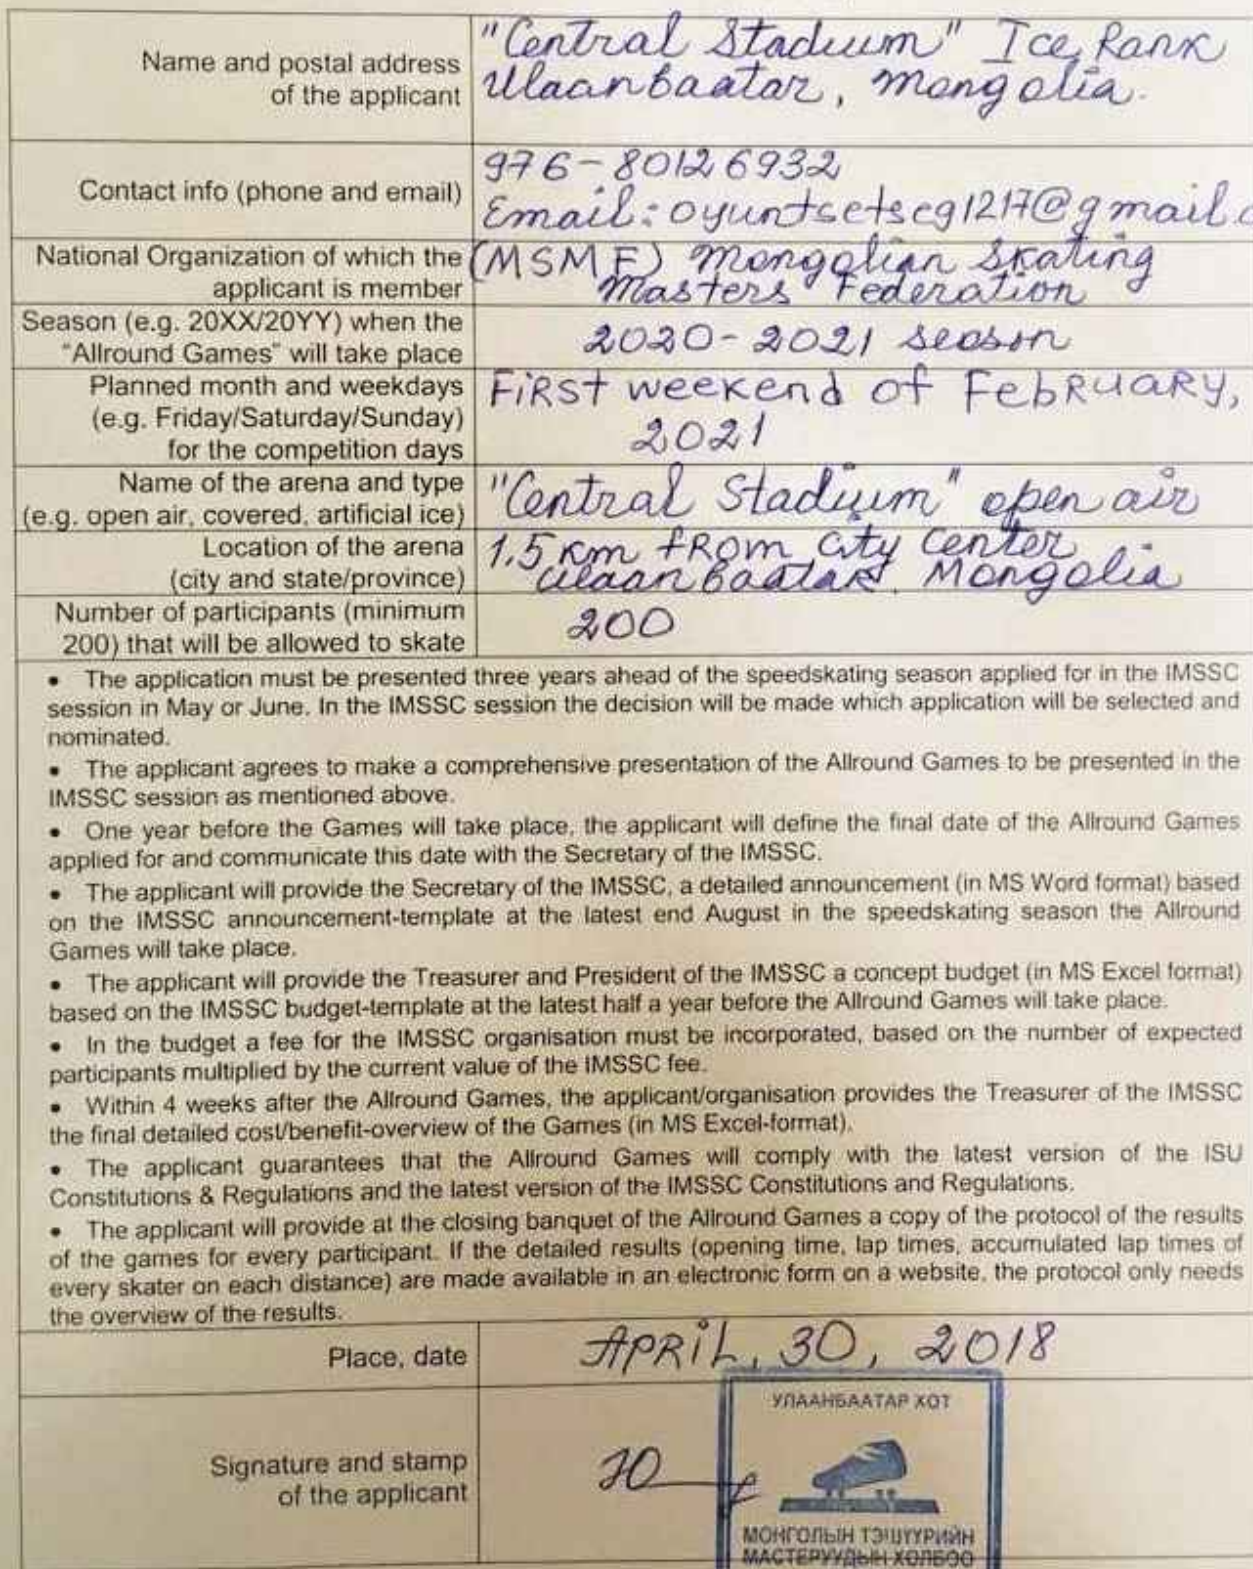 Name and postal address
of the applicant
"Central Stadium" Ice Rank
Ulaanbaatar, Mongolia.
Contact info (phone and email)
976-80126932
Email: oyuntsetseg1217@gmail.c
National Organization of which the
applicant is member
(MSMF) Mongolian Skating
Masters Federation
Season (e.g. 20XX/20YY) when the
"Allround Games" will take place
2020-2021 season
Planned month and weekdays
(e.g. Friday/Saturday/Sunday)
for the competition days
First weekend of February,
2021
Name of the arena and type
(e.g. open air, covered, artificial ice)
"Central Stadium" open air
Location of the arena
(city and state/province)
1.5 km from city center
Ulaanbaatar. Mongolia
Number of participants (minimum
200) that will be allowed to skate
200
• The application must be presented three years ahead of the speedskating season applied for in the IMSSC
session in May or June. In the IMSSC session the decision will be made which application will be selected and
nominated.
• The applicant agrees to make a comprehensive presentation of the Allround Games to be presented in the
IMSSC session as mentioned above.
• One year before the Games will take place, the applicant will define the final date of the Allround Games
applied for and communicate this date with the Secretary of the IMSSC.
• The applicant will provide the Secretary of the IMSSC, a detailed announcement (in MS Word format) based
on the IMSSC announcement-template at the latest end August in the speedskating season the Allround
Games will take place.
• The applicant will provide the Treasurer and President of the IMSSC a concept budget (in MS Excel format)
based on the IMSSC budget-template at the latest half a year before the Allround Games will take place.
• In the budget a fee for the IMSSC organisation must be incorporated, based on the number of expected
participants multiplied by the current value of the IMSSC fee.
• Within 4 weeks after the Allround Games, the applicant/organisation provides the Treasurer of the IMSSC
the final detailed cost/benefit-overview of the Games (in MS Excel-format).
• The applicant guarantees that the Allround Games will comply with the latest version of the ISU
Constitutions & Regulations and the latest version of the IMSSC Constitutions and Regulations.
• The applicant will provide at the closing banquet of the Allround Games a copy of the protocol of the results
of the games for every participant. If the detailed results (opening time, lap times, accumulated lap times of
every skater on each distance) are made available in an electronic form on a website, the protocol only needs
the overview of the results.
Place, date
APRIL, 30, 2018
Signature and stamp
of the applicant
УЛААНБААТАР ХОТ
МОНГОЛЫН ТЭШҮҮРИЙН
МАСТЕРУУДЫН ХОЛБОО